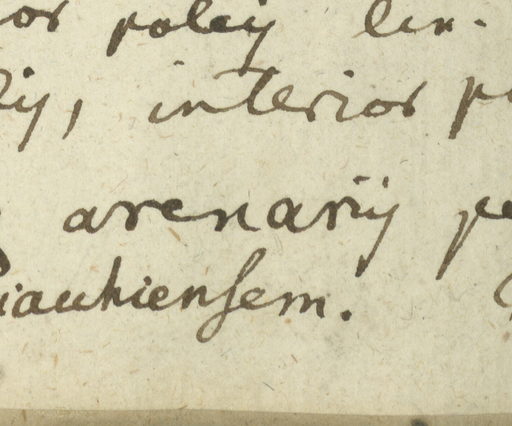 or poley lin.
ij, interior p
arenarij pe
iauhiensem.